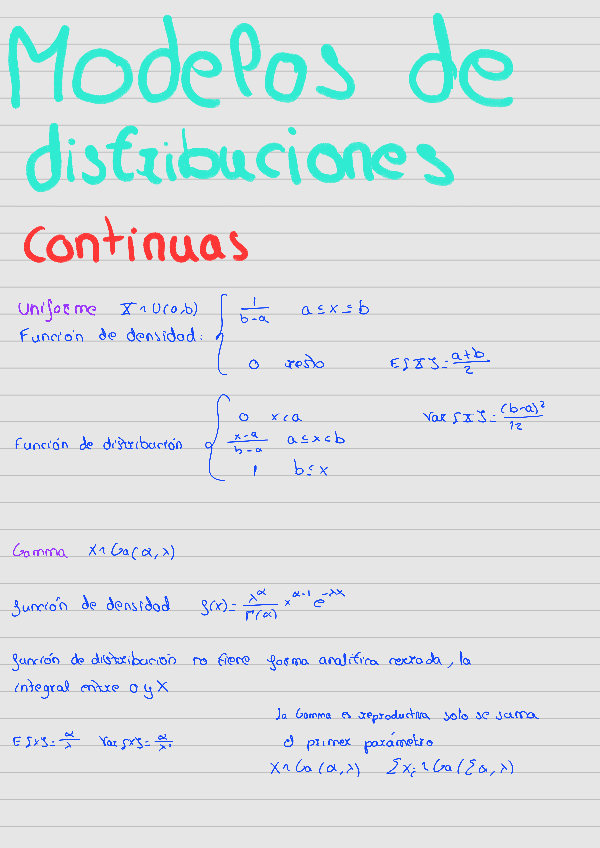 Modelos de
distribuciones
continuas
Uniforme X ~ U(a,b) { 1/(b-a) a ≤ x ≤ b
Función de densidad:
0 resto E{X} = (a+b)/2
0 x<a Var{X} = (b-a)²/12
Función de distribución { (x-a)/(b-a) a ≤ x < b
1 b ≤ x
Gamma X ~ Ga(α, λ)
función de densidad f(x) = λ^α/Γ(α) x^(α-1) e^(-λx)
función de distribución no tiene forma analítica cerrada, la
integral entre 0 y X
la Gamma es reproductiva solo se suma
E{X} = α/λ Var{X} = α/λ² el primer parámetro
X ~ Ga(α, λ) Σxᵢ ~ Ga(Σα, λ)